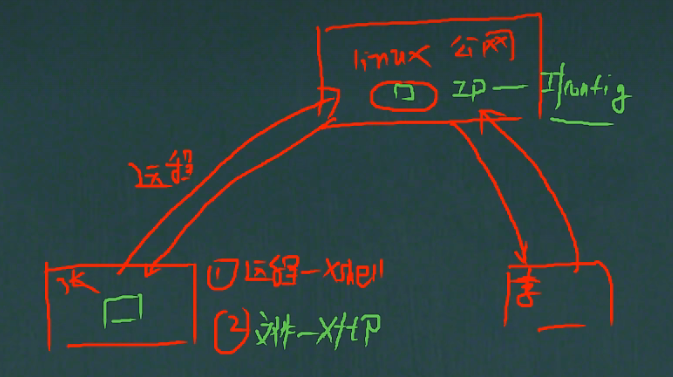 linux 公网
IP — Ifconfig
远程
张
① 远程 — xshell
② 文件 — Xftp
李